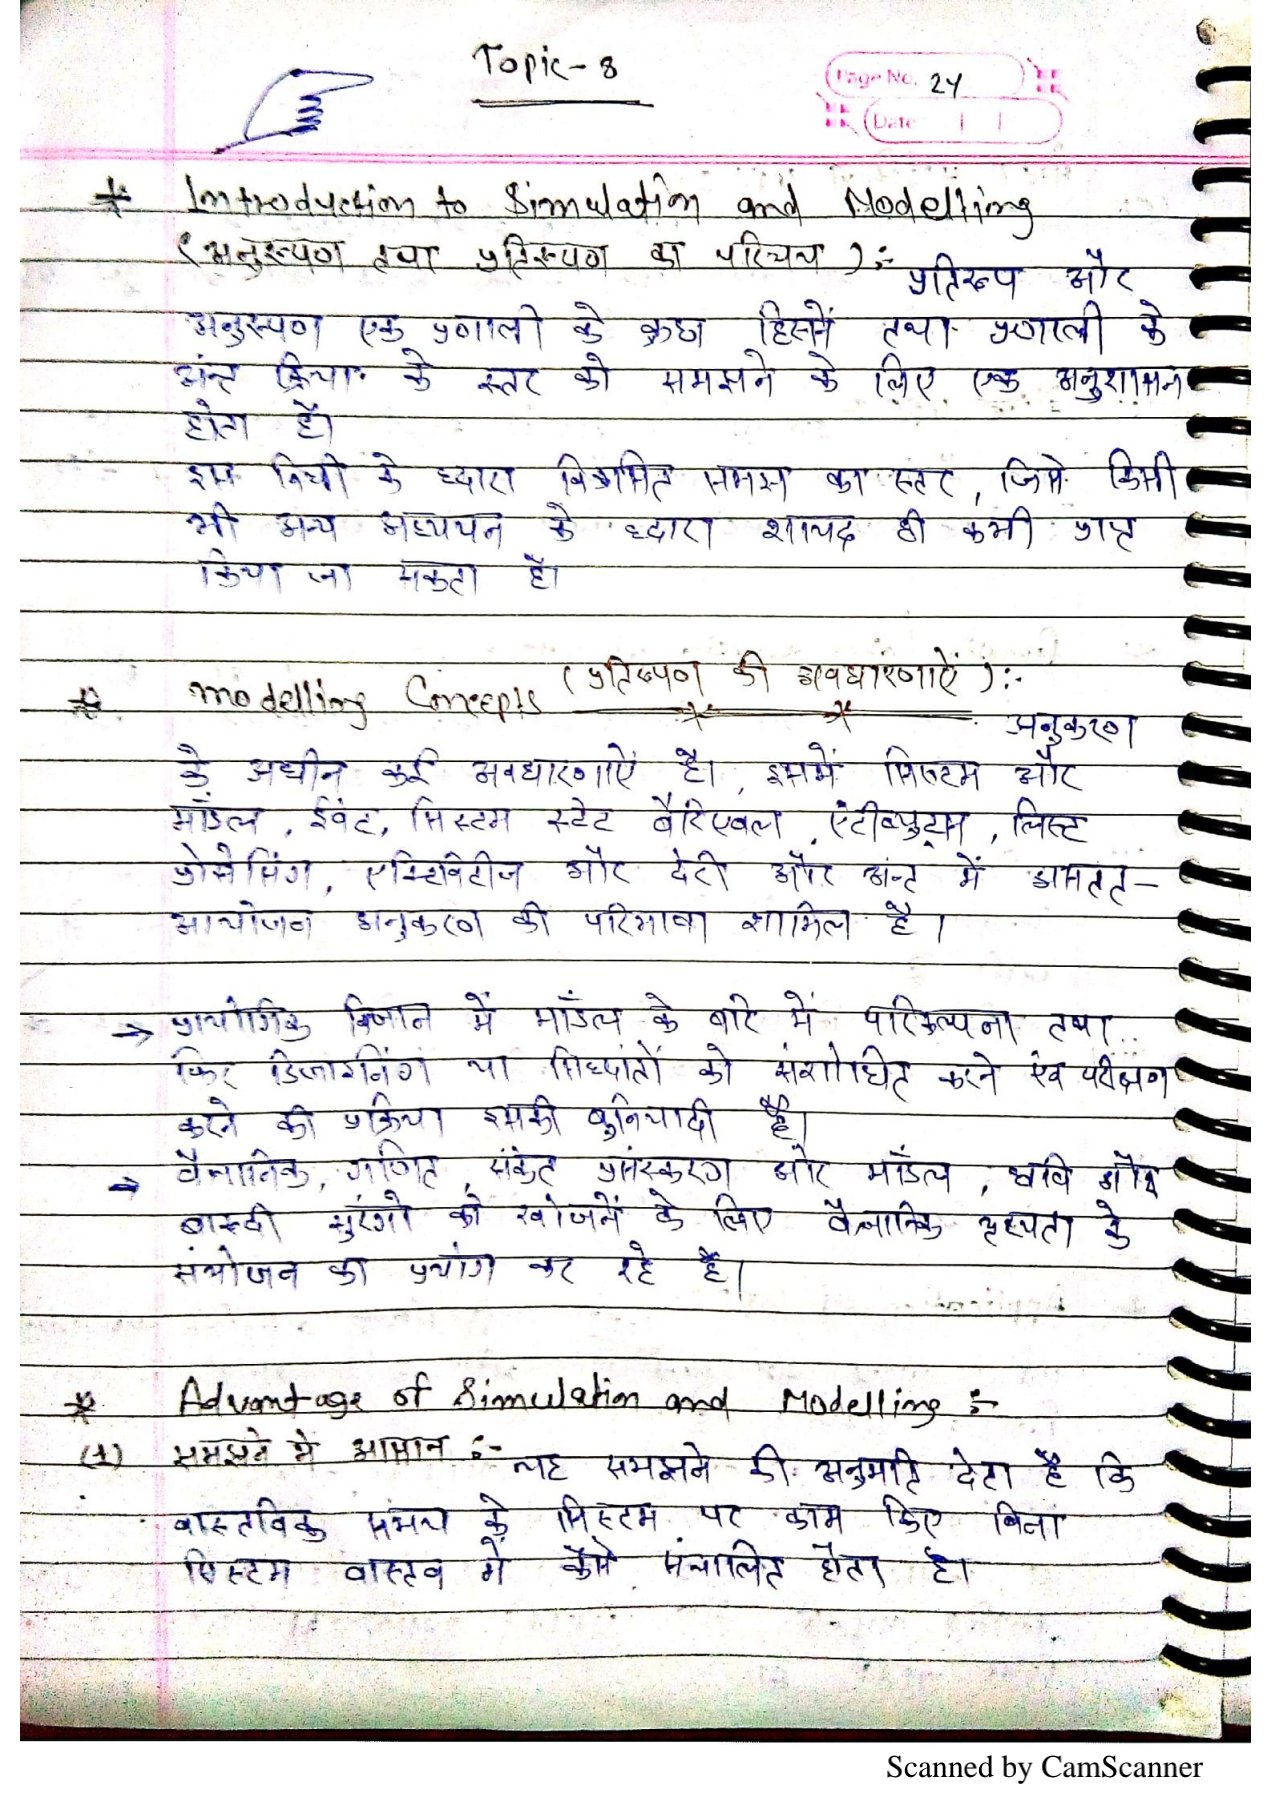 Topic - 8
Page No. 24
Date
* Introduction to Simulation and Modelling
(अनुरूपण तथा प्रतिरूपण का परिचय ) :-
प्रतिरूप और
अनुरूपण एक प्रणाली के कुछ हिस्सें तथा प्रणाली के
अंन्त क्रिया के स्तर को समझने के लिए एक अनुशासन
होता है।
इस विधी के ध्दारा विकासित समझ का स्तर, जिसे किसी
भी अन्य अध्ययन के ध्दारा शायद ही कभी प्राप्त
किया जा सकता है।
* Modelling Concepts (प्रतिरूपण की अवधारणाऐं ) :-
अनुकरण
के अधीन कई अवधारणाऐं है। इसमें सिस्टम और
मॉडल, ईवेंट, सिस्टम स्टेट वैरिएबल, एंटीब्युट्स, लिस्ट
प्रोसेसिंग, एक्टिविटीज और देरी और अंन्त में असतत -
आयोजन अनुकरण की परिभाषा शामिल है।
→ प्रायोगिक विज्ञान में मॉडल के बारे में परिकल्पना तथा
फिर डिजाइनिंग या सिध्दांतों को संशोधित करने एंव परीक्षण
करने की प्रक्रिया इसकी बुनियादी है।
→ वैज्ञानिक, गणित, संकेत प्रसंस्करण और मॉडल, छवि और
बारूदी सुरंगो को खोजनें के लिए वैज्ञानिक दृश्यता के
संयोजन का प्रयोग कर रहे है।
* Advantage of Simulation and Modelling :-
(1) समझने में आसान :- यह समझने की अनुमति देता है कि
वास्तविक समय के सिस्टम पर काम किए बिना
सिस्टम वास्तव में कैसे संचालित होता है।
Scanned by CamScanner